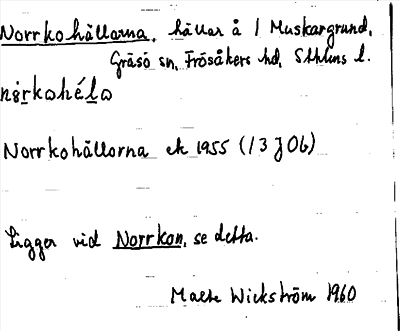 Norrkohällorna, hällar å / Muskargrund,
Gräsö sn, Frösåkers hd, Sthlms l.
Norrkohällorna ek 1955 (13 J 0b)
Ligger vid Norrkon, se detta.
Malte Wickström 1960